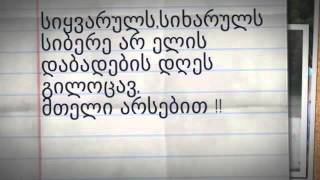 სიყვარულს,სიხარულს
სიბერე არ ელის
დაბადების დღეს
გილოცავ.
მთელი არსებით !!